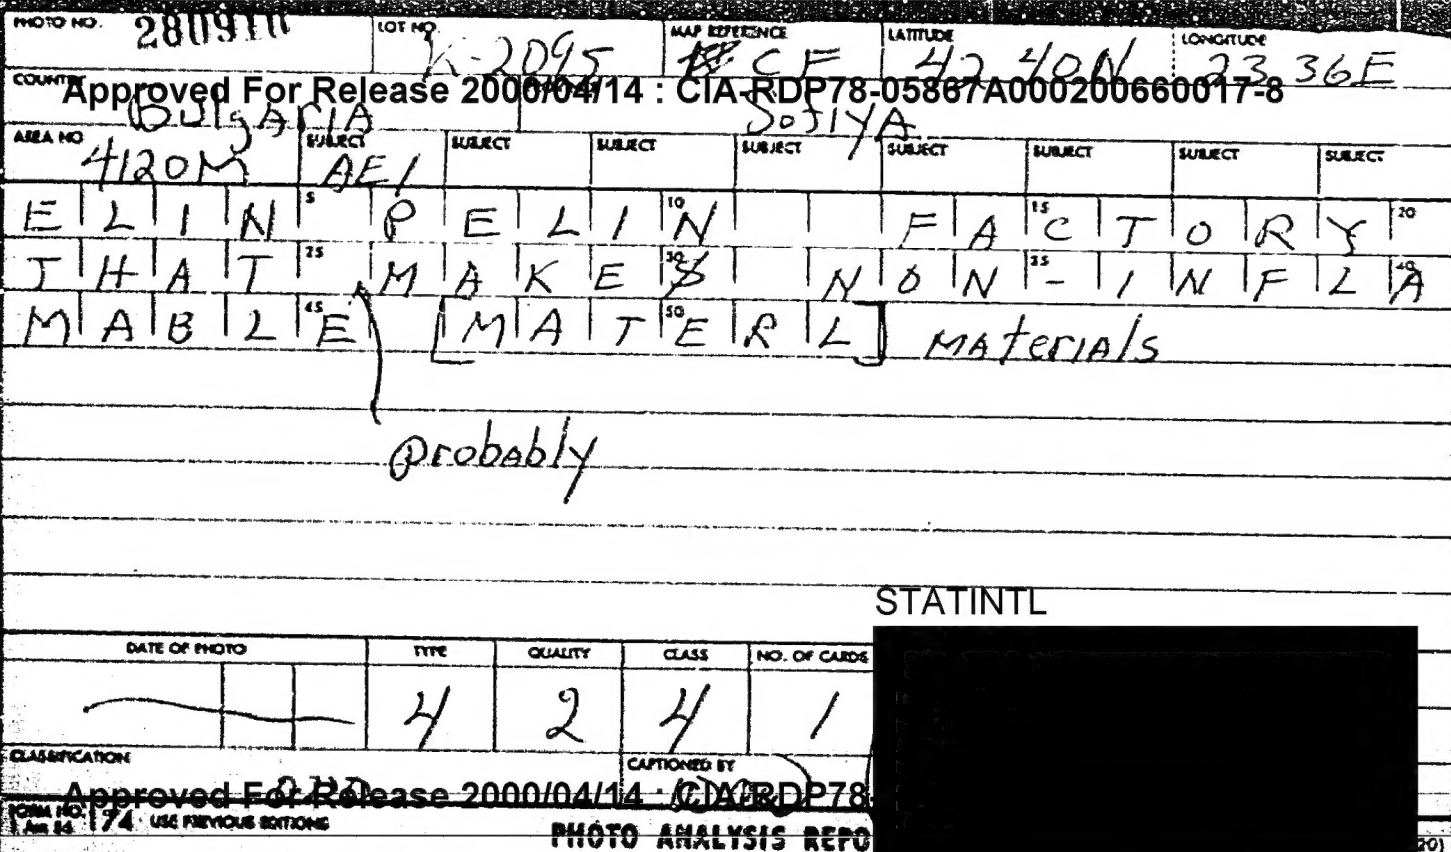 PHOTO NO. 280910 LOT NO. K-2095 MAP REFERENCE CF LATITUDE 42 40N LONGITUDE 23 36E
COUNTRY Bulgaria Sofiya
Approved For Release 2000/04/14 : CIA-RDP78-05867A000200660017-8
AREA NO 4120M SUBJECT AE1 SUBJECT SUBJECT SUBJECT SUBJECT SUBJECT SUBJECT SUBJECT
ELIN 5 PELIN 10 FAC 15 TORY 20
THAT 25 MAKES 30 NON 35 -INFLA 40
MABLE 45 [MATERL] 50 Materials
probably
STATINTL
DATE OF PHOTO TYPE QUALITY CLASS NO. OF CARDS
4 2 4 1
CLASSIFICATION CAPTIONED BY
Approved For Release 2000/04/14 : CIA-RDP78
FORM NO. 174 USE PREVIOUS EDITIONS
PHOTO ANALYSIS REPO 20)